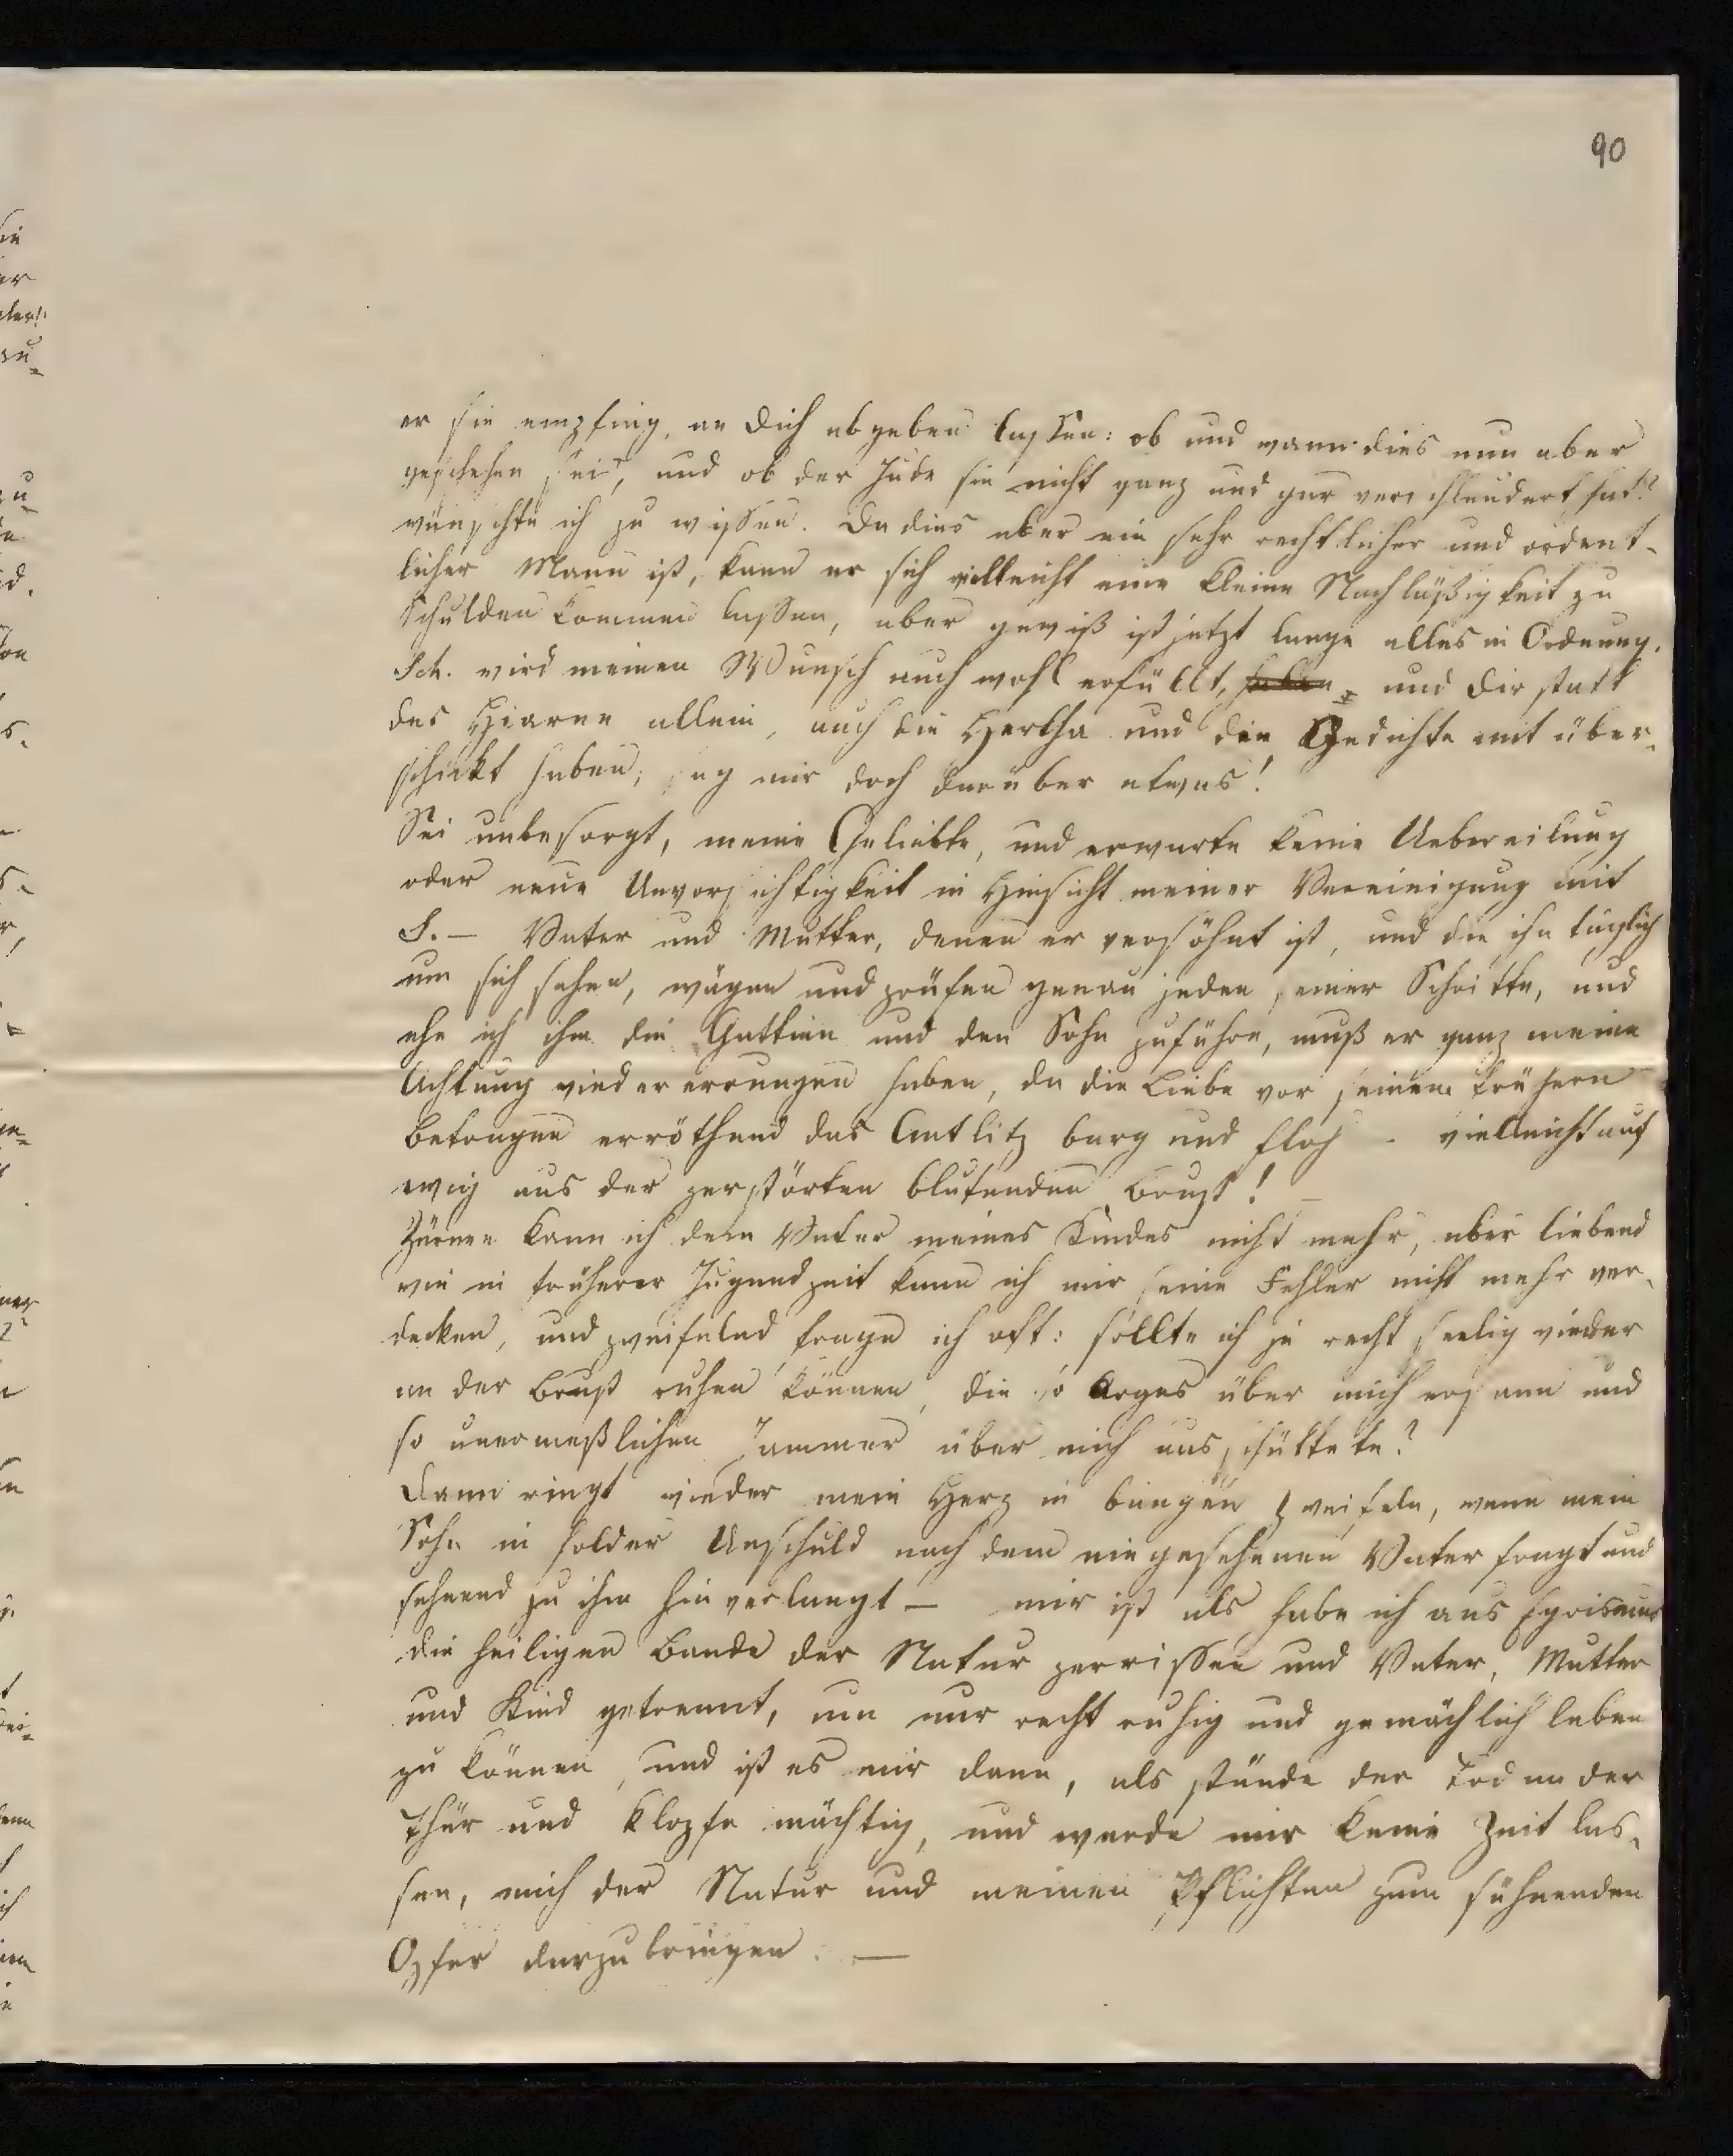 90
er sie empfing, an Dich abgeben lassen: ob und wann dies nun aber
geschehen sei, und ob der Jude sie nicht ganz und gar verschleudert hat?
wünschte ich zu wissen. Da dies aber ein sehr rechtlicher und ordent-
licher Mann ist, kann er sich vielleicht eine kleine Nachläßigkeit zu
Schulden kommen lassen, aber gewiß ist jetzt lange alles in Ordnung.
Sch. wird meinen Wunsch auch wohl erfüllt, haben und Dir statt
des Hiarne allein, auch die Hertha und die Gedichte mit über-
schickt haben; sag mir doch darüber etwas!
Sei unbesorgt, meine Geliebte, und erwarte keine Uebereilung
oder neue Unvorsichtigkeit in Hinsicht meiner Vereinigung mit
S. — Vater und Mutter, denen er versöhnt ist, und die ihn täglich
um sich sehen, wägen und prüfen genau jeden seiner Schritte, und
ehe ich ihm die Gattinn und den Sohn zuführe, muß er ganz meine
Achtung wieder errungen haben, da die Liebe vor seinem frühern
Betragen erröthend das Antlitz barg und floh - vielleicht auf
ewig aus der zerstörten blutenden Brust! —
Zürnen kann ich dem Vater meines Kindes nicht mehr, aber liebend
wie in früherer Jugendzeit kann ich mir seine Fehler nicht mehr ver-
decken, und zweifelnd frage ich oft: sollte ich je recht seelig wieder
an der Brust ruhen können, die so Arges über mich ersann und
so unermeßlichen Jammer über mich ausschüttete?
Dann ringt wieder mein Herz in bangen Zweifeln, wenn mein
Sohn in holder Unschuld nach dem niegesehenen Vater fragt und
sehnend zu ihm hin verlangt — mir ist als habe ich aus Egoismus
die heiligen Bande der Natur zerrissen und Vater, Mutter
und Kind getrennt, um nur recht ruhig und gemächlich leben
zu können, und ist es mir dann, als stände der Tod an der
Thür und klopfe mächtig, und werde mir keine Zeit las-
sen, mich der Natur und meinen Pflichten zum sühnenden
Opfer darzubringen. —